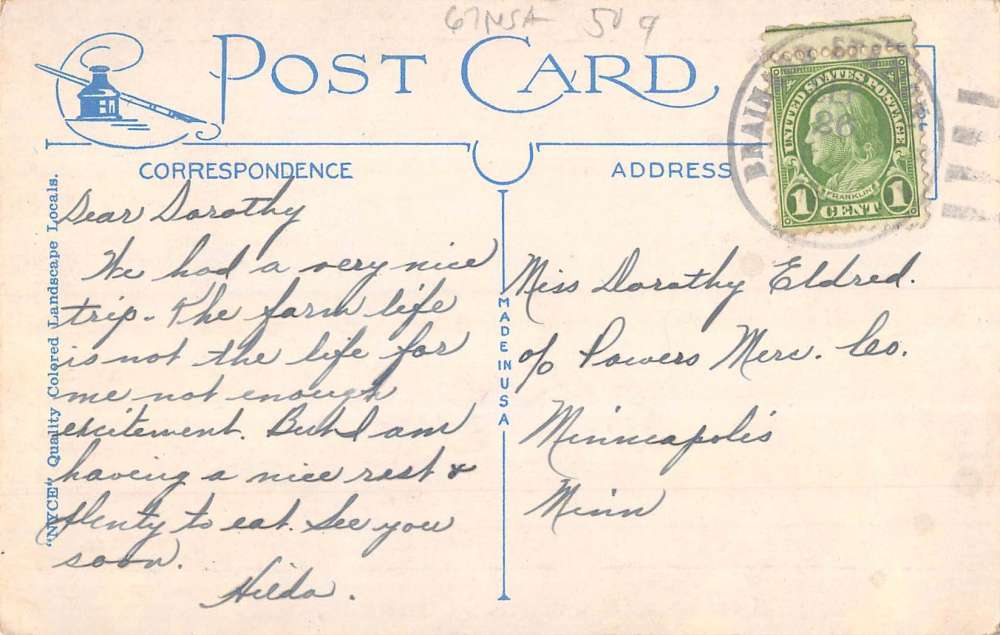 67NSA 50 9
POST CARD
UNITED STATES POSTAGE
26
FRANKLIN
1 CENT 1
CORRESPONDENCE
ADDRESS
"NYCE" Quality Colored Landscape Locals.
MADE IN USA
Dear Dorothy
We had a very nice
trip. The farm life
is not the life for
me not enough
excitement. But I am
having a nice rest &
plenty to eat. See you
soon.
Hilda.
Miss Dorothy Eldred.
c/o Powers Merc. Co.
Minneapolis
Minn